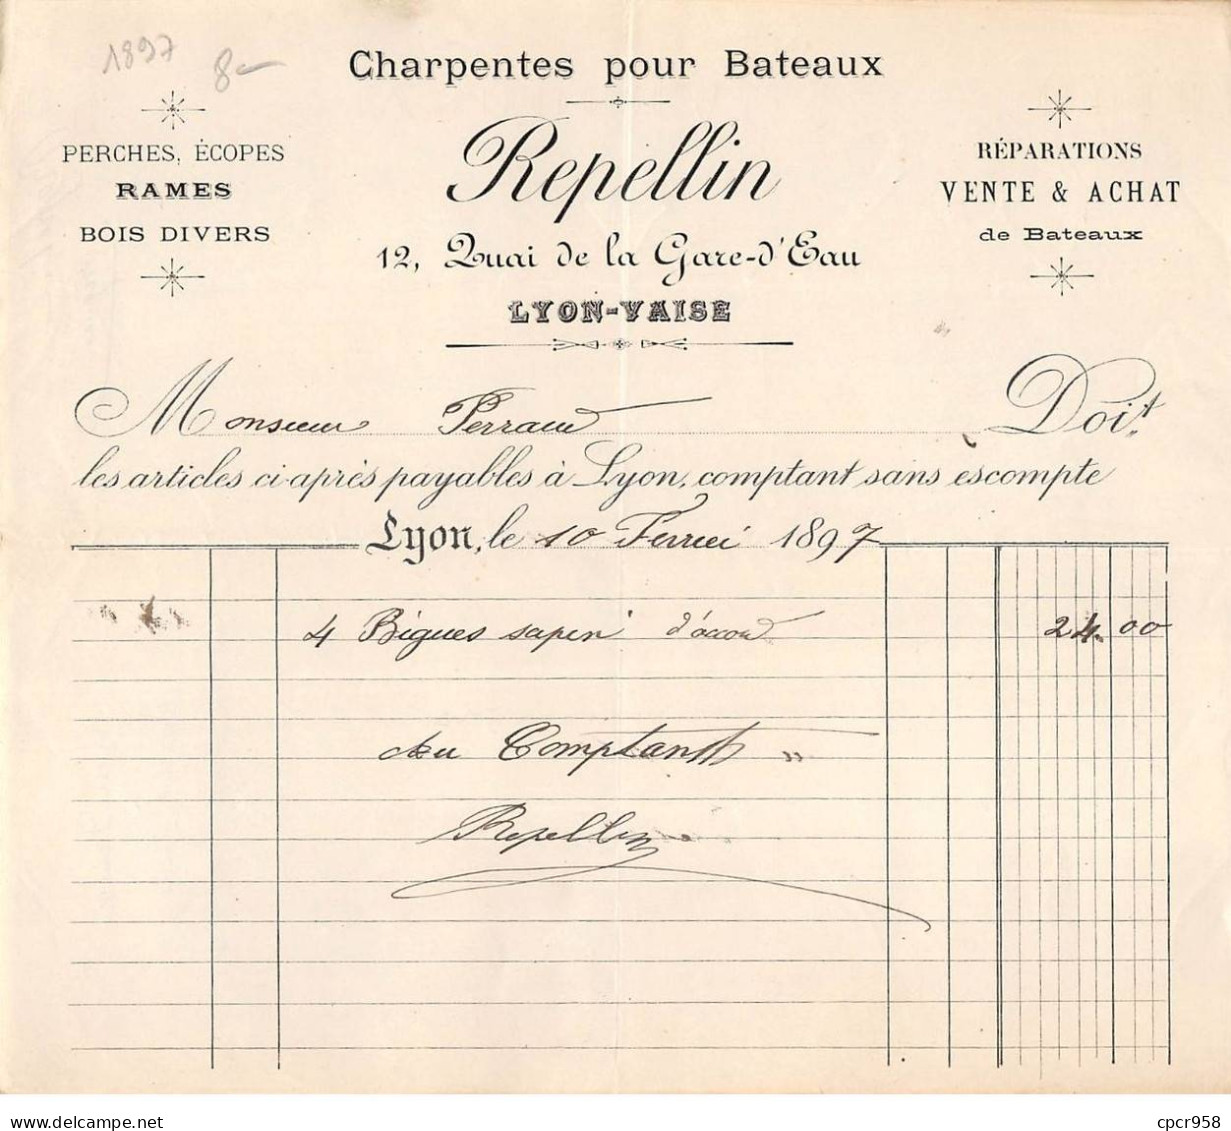 1897
8-
Charpentes pour Bateaux
PERCHES, ÉCOPES
RAMES
BOIS DIVERS
Repellin
12, Quai de la Gare-d'Eau
LYON-VAISE
RÉPARATIONS
VENTE & ACHAT
de Bateaux
Monsieur Perraud Doit
les articles ci-après payables à Lyon, comptant sans escompte
Lyon, le 10 1897
4 Bigues sapin d'accord 24.00
au Comptant
Repellin
delcampe.net
cpcr958